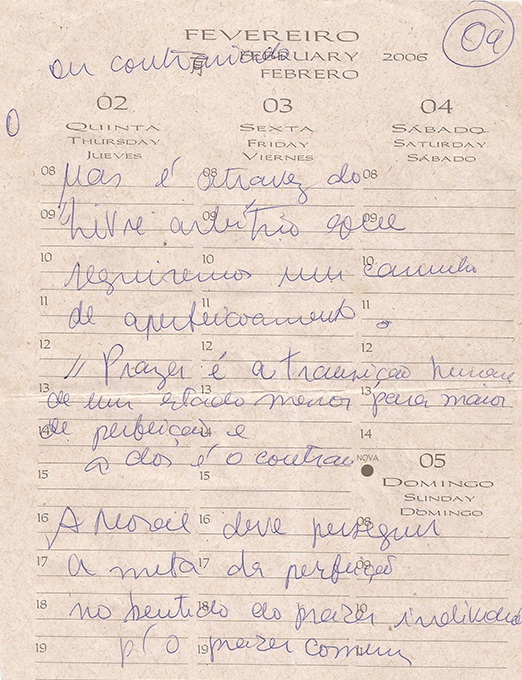 FEVEREIRO
FEBRUARY 2006
FEBRERO
09
ou contrariado
02 03 04
QUINTA SEXTA SÁBADO
THURSDAY FRIDAY SATURDAY
JUEVES VIERNES SÁBADO
08 Mas é atravez do 08
09 livre arbítrio que 09
10 seguiremos um caminho 10
11 de aperfeiçoamento. 11
12 12
// Prazer é a transição humana
13 de um estado menor para maior 13
14 de perfeição e 14
a dor é o contrario
NOVA 05
15 15
DOMINGO
SUNDAY
DOMINGO
16 A Moral 16 deve perseguir 08
17 a meta da perfeição 09
18 no sentido do prazer individual 10
19 p/ o 19 prazer comum